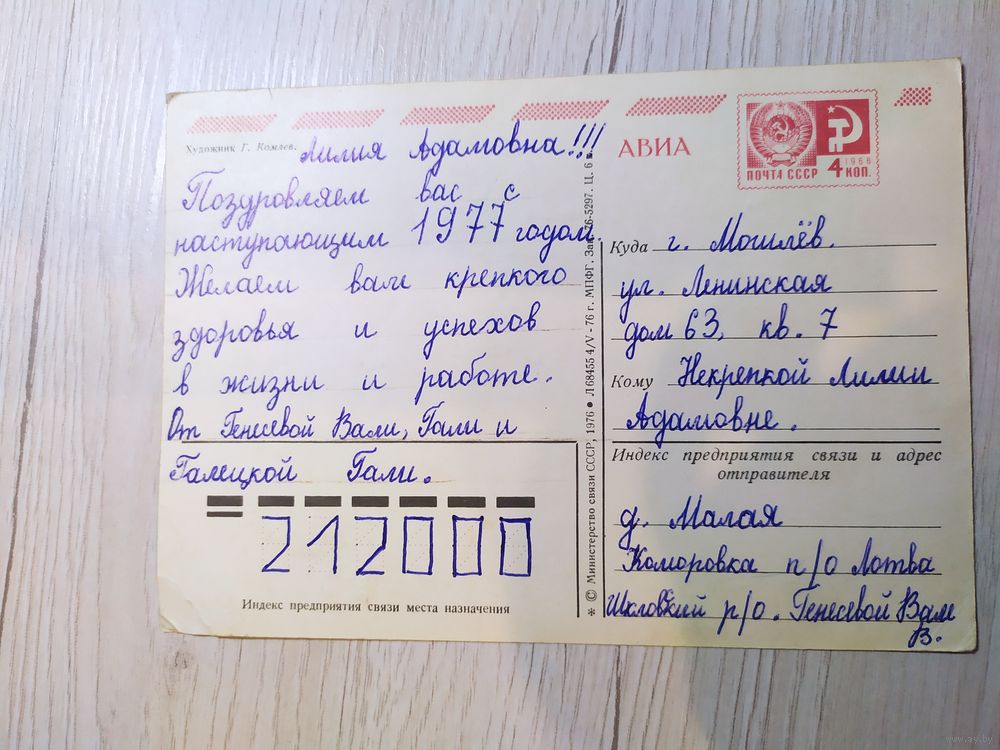 Художник Г. Комлев.
Лилия Адамовна!!!
Поздровляем вас с
наступающим 1977 годом.
Желаем вам крепкого
здоровья и успехов
в жизни и работе.
От Генесевой Вали, Гали и
Галецкой Гали.
212000
Индекс предприятия связи места назначения
* © Министерство связи СССР, 1976 ● Л 68455 4/V - 76 г. МПФГ. Зак. 76-5297. Ц. 6 к.
АВИА
ПОЧТА СССР
1966
4 КОП.
Куда г. Могилёв.
ул. Ленинская
дом 63, кв. 7
Кому Некрепкой Лилии
Адамовне.
Индекс предприятия связи и адрес
отправителя
д. Малая
Коморовка п/о Лотва
Шкловский р/о. Генесевой Вале
В.
www.ay.by